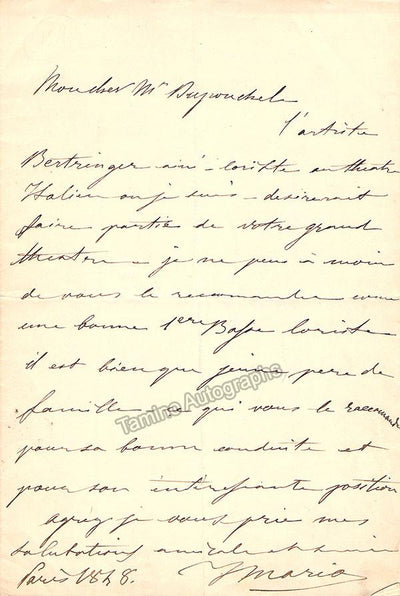 Moncher Mr Duponchel
l'artiste
Bertringer ainé - coriste au theatre
Italien ou je suis - desirerait
faire partie de votre grand
theatre - je ne peus à moin
de vous le recommander come
une bonne 1ere Basse coriste
il est bien que jeune pere de
famille ce qui vous le racomande
pour sa bonne conduite et
pour son interessante position
agrez je vous prie mes
salutations amicale
Paris 1848. Mario
Tamino Autographs